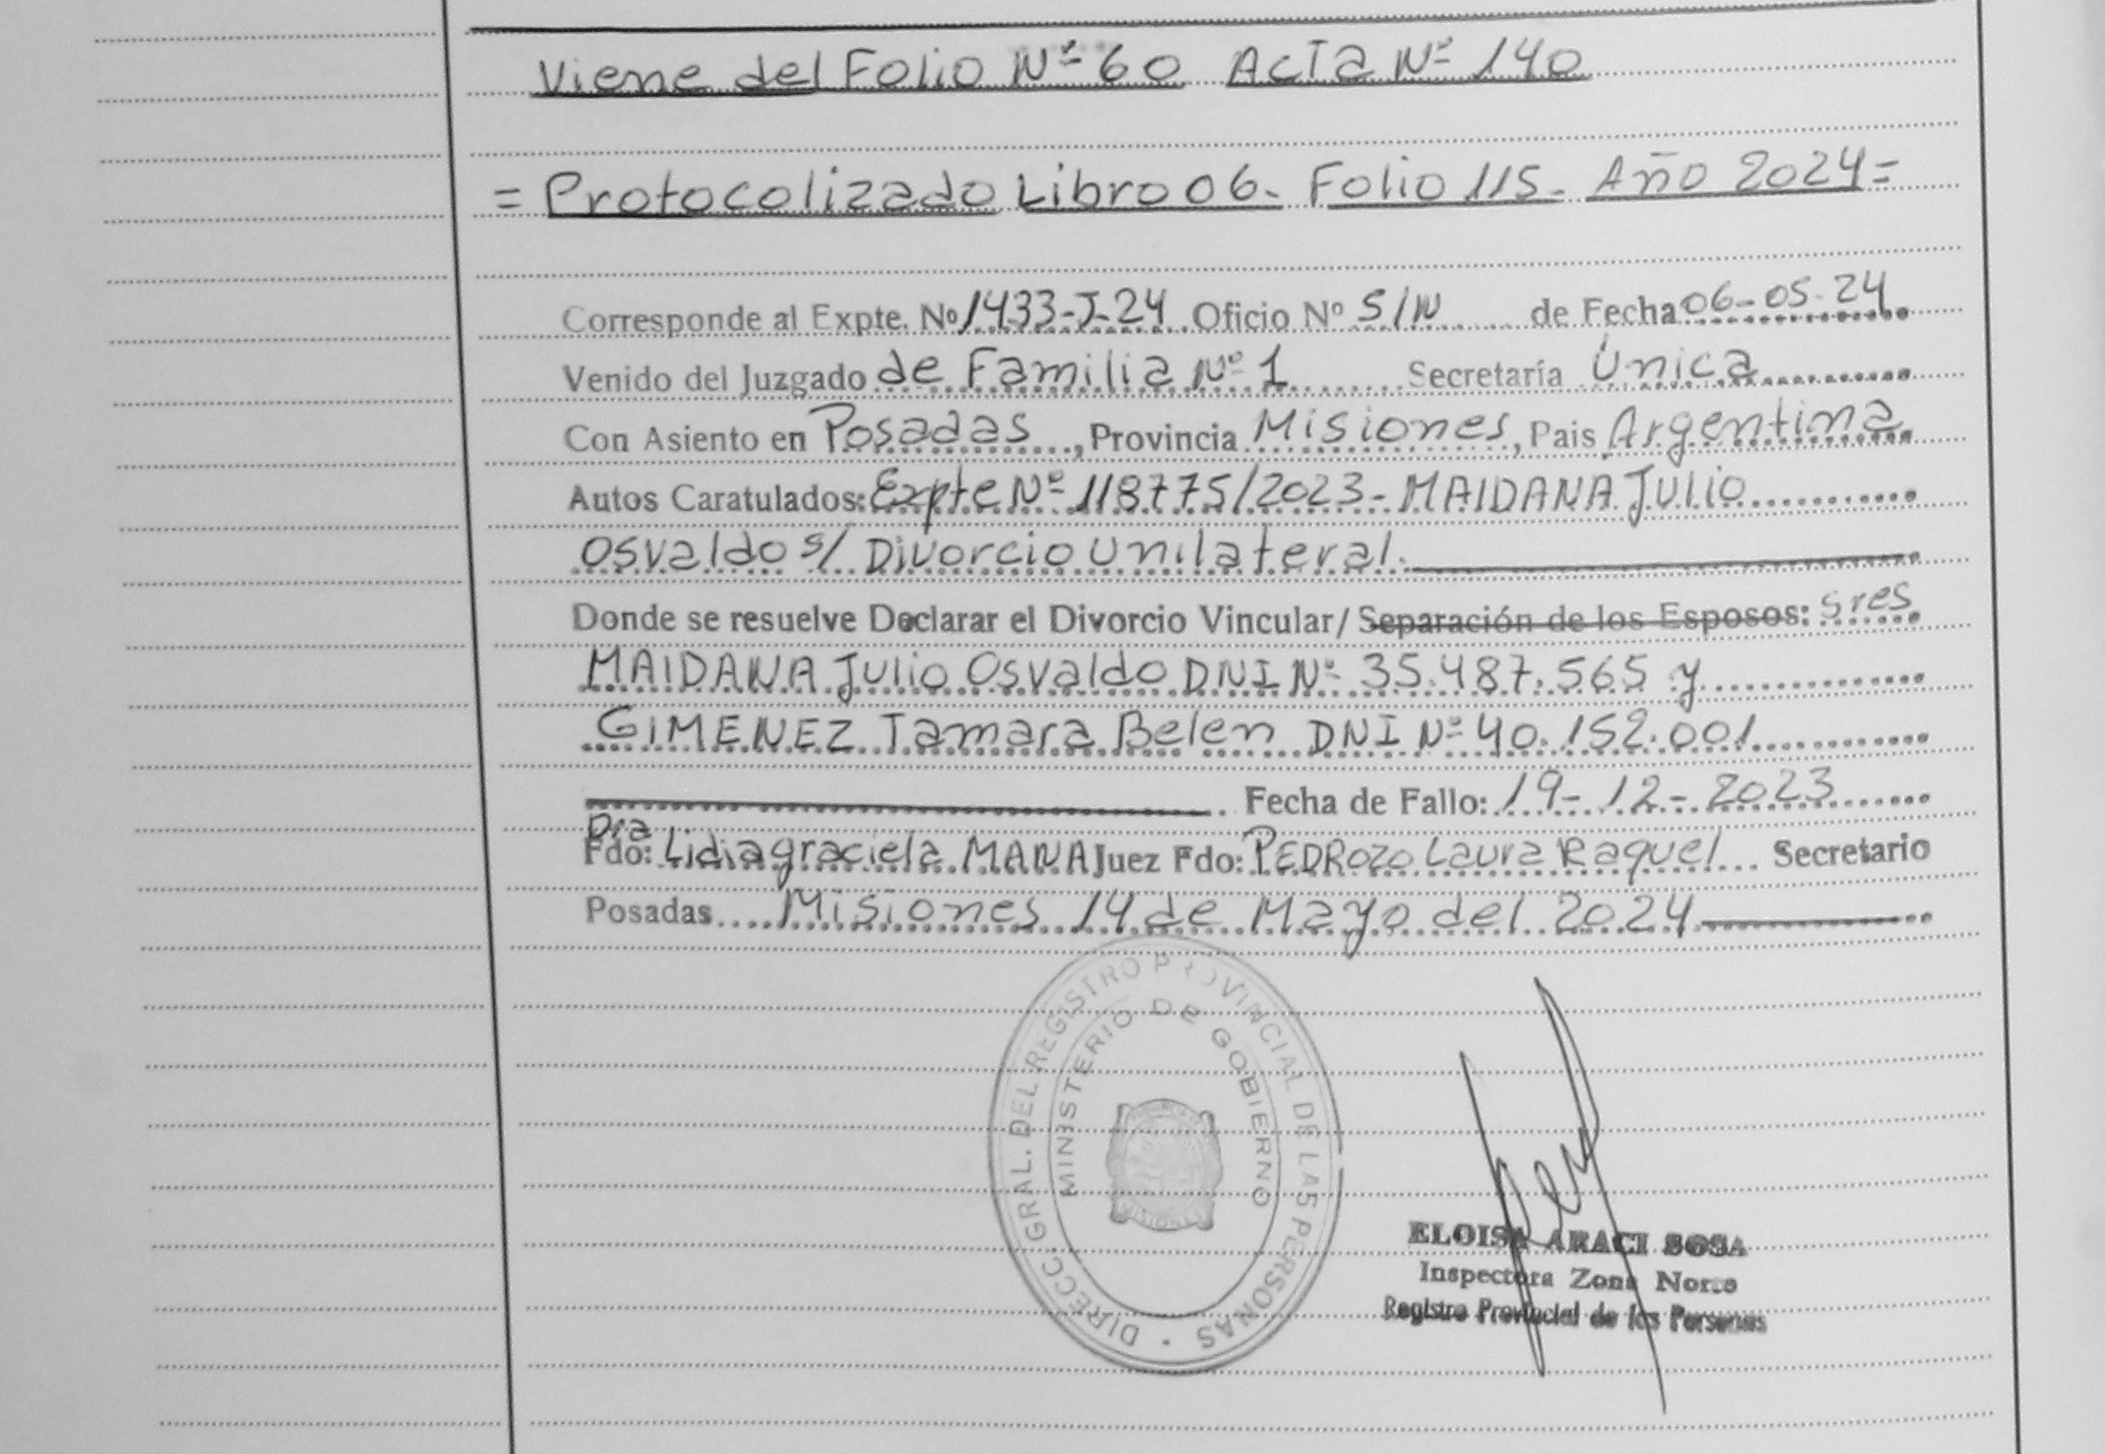 Viene del Folio Nº 60 Acta Nº 140
= Protocolizado Libro 06- Folio 115- Año 2024=
Corresponde al Expte. Nº 1433-J-24 Oficio Nº S/N de Fecha 06-05-24
Venido del Juzgado de Familia Nº 1 Secretaría Única
Con Asiento en Posadas, Provincia Misiones, Pais Argentina
Autos Caratulados: Expte Nº 118775/2023- MAIDANA Julio
Osvaldo s/ Divorcio Unilateral.
Donde se resuelve Declarar el Divorcio Vincular/ Separación de los Esposos: Sres
MAIDANA Julio Osvaldo DNI Nº 35.487.565 y
GIMENEZ Tamara Belen DNI Nº 40.152.001
Fecha de Fallo: 19-12-2023
Dra
Fdo: Lidia graciela MANA Juez Fdo: PEDROZO Laura Raquel Secretario
Posadas Misiones 14 de Mayo del 2024
DIRECC. GRAL. DEL REGISTRO PROVINCIAL DE LAS PERSONAS
MINISTERIO DE GOBIERNO
MISIONES
ELOISA ARACI SOSA
Inspectora Zona Norte
Registro Provincial de las Personas